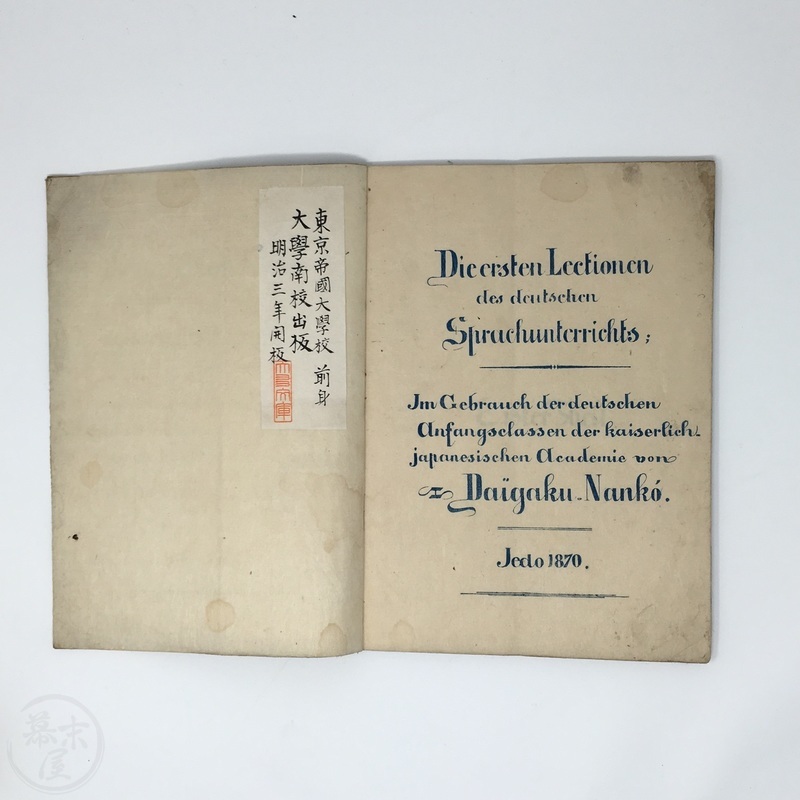 東京帝國大學校 前身
大學南校出板
明治三年開板
Die ersten Lectionen
des deutschen
Sprachunterrichts;
Im Gebrauch der deutschen
Anfangsclassen der kaiserlich-
japanesischen Academie von
Daïgaku-Nankó.
Jedo 1870.
幕末屋